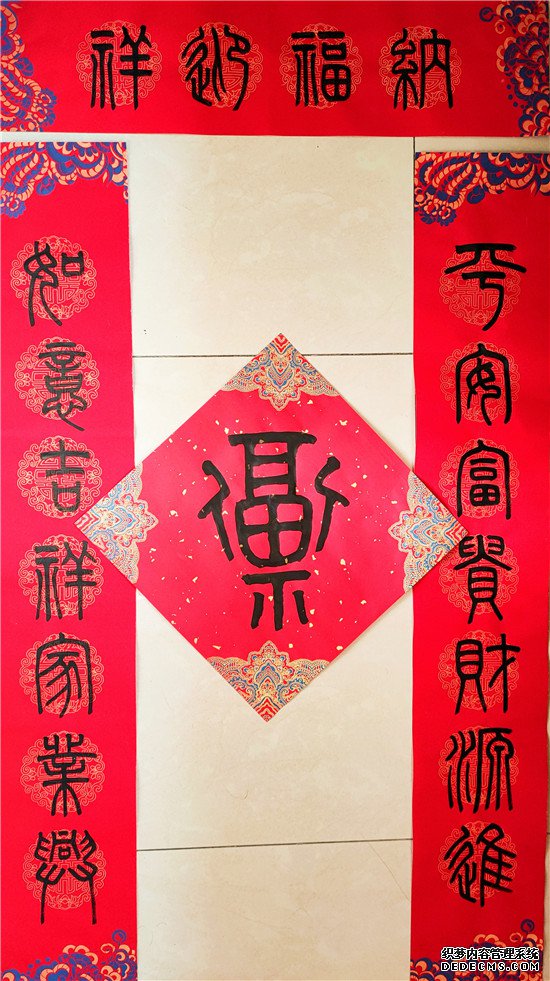 納福迎祥
平安富貴財源進
如意吉祥家業興
福
织梦内容管理系统
DEDECMS.COM